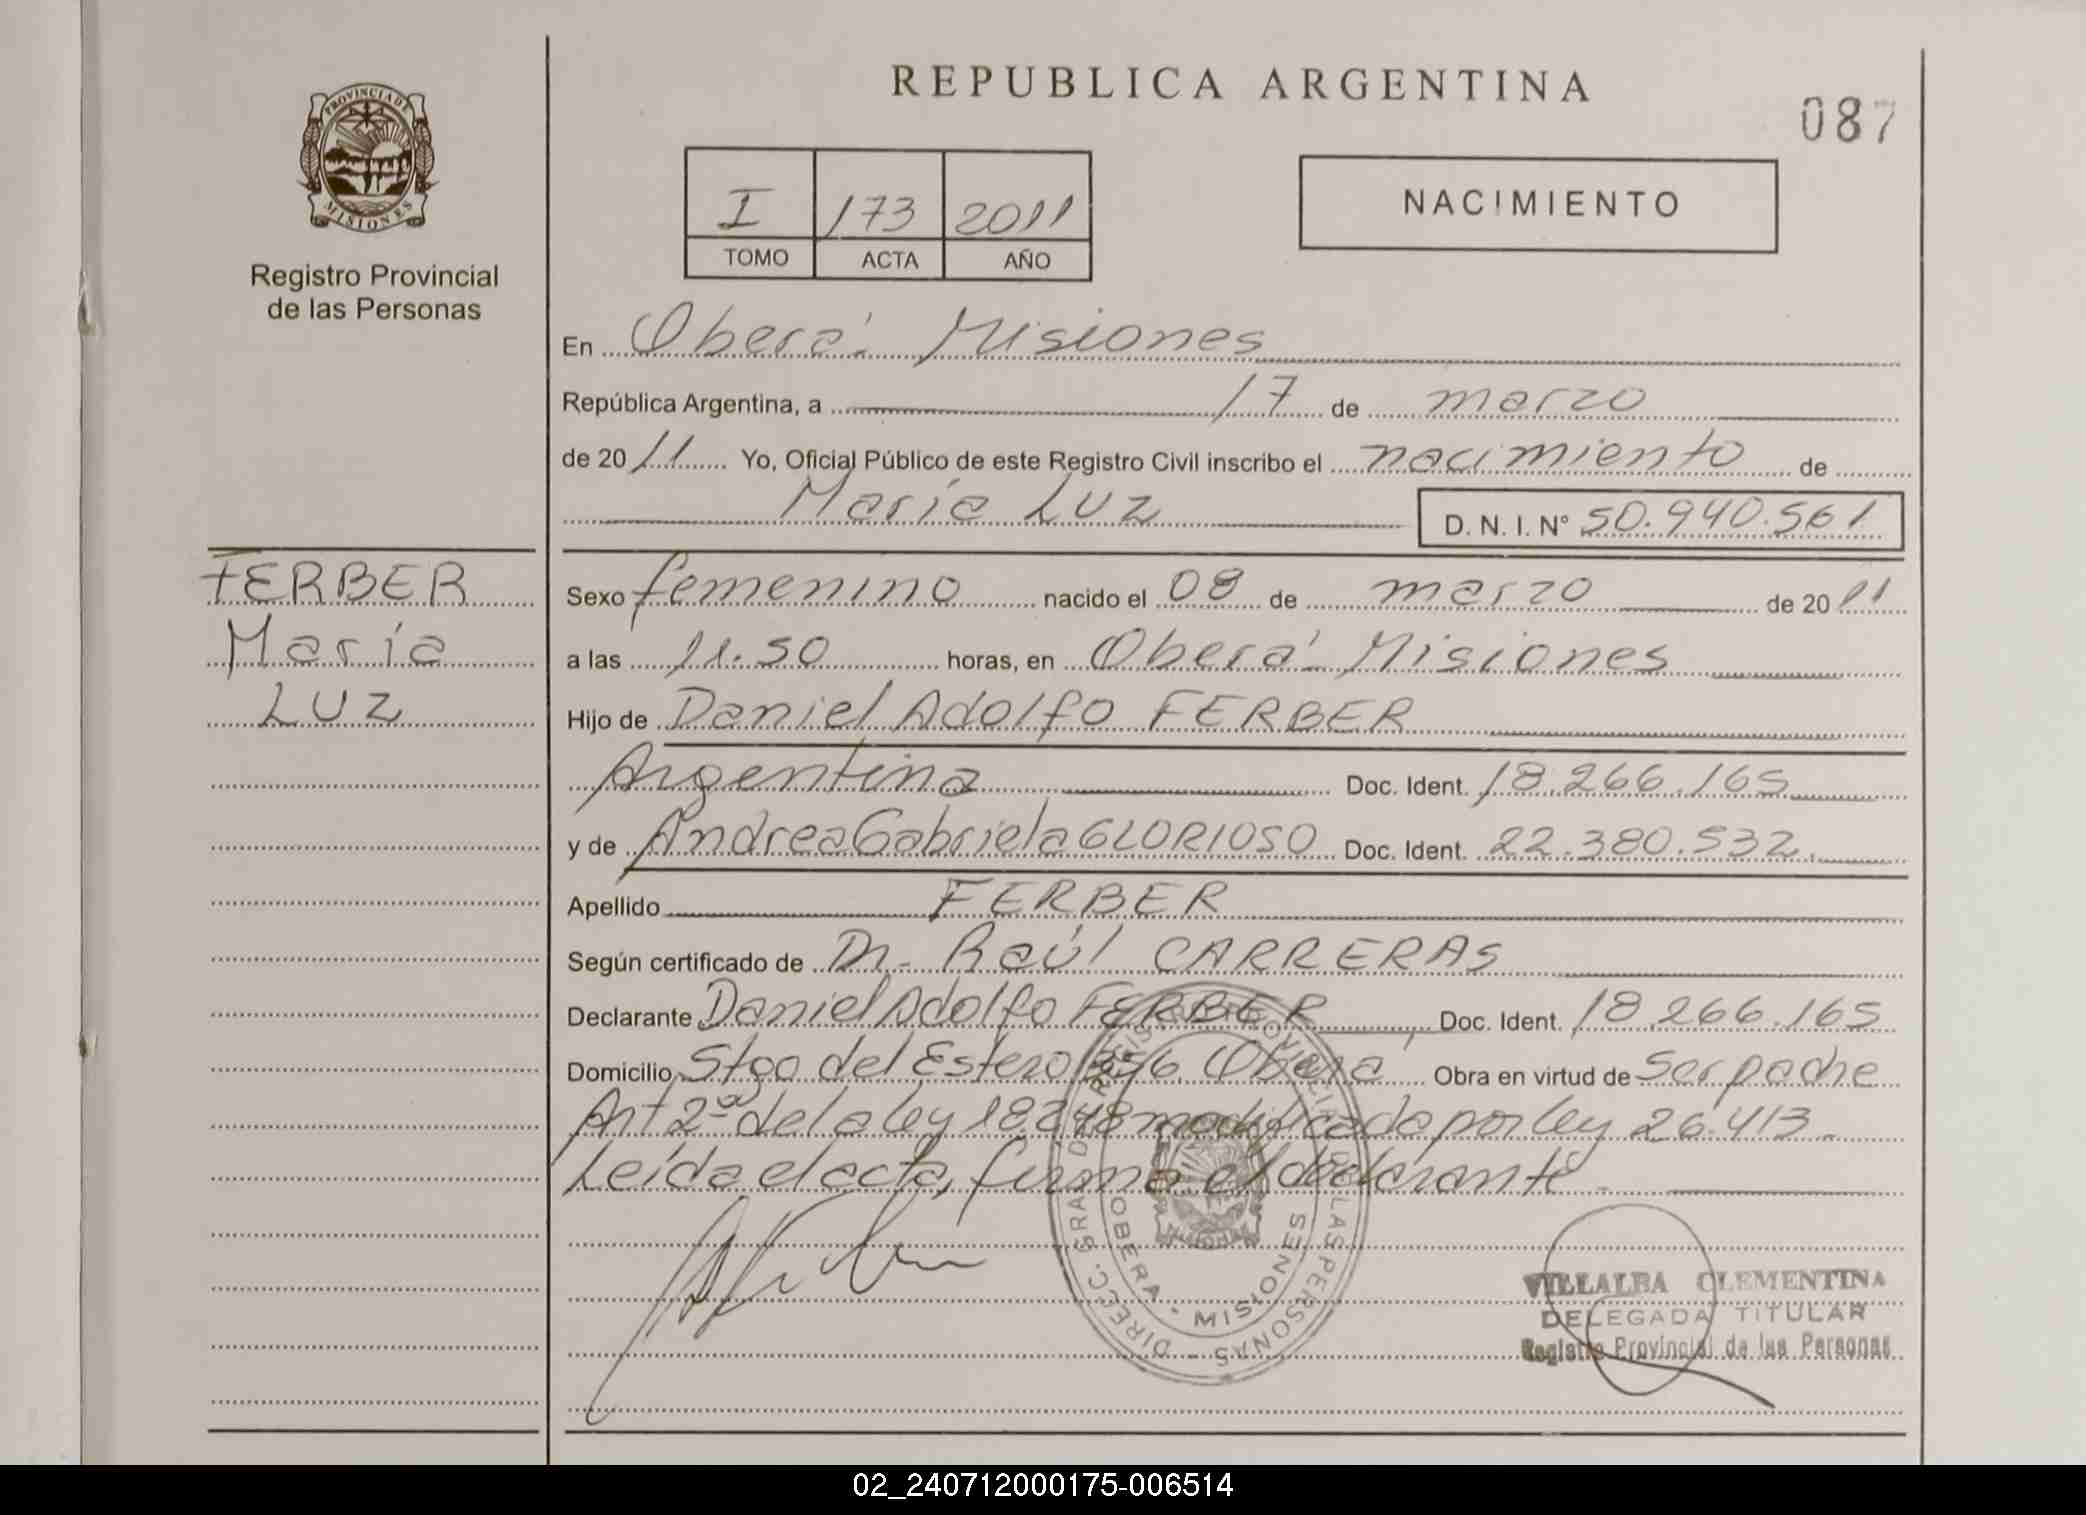 REPUBLICA ARGENTINA
087
PROVINCIA DE
MISIONES
Registro Provincial
de las Personas
I 173 2011
TOMO ACTA AÑO
NACIMIENTO
En Oberá Misiones
República Argentina, a 17 de marzo
de 2011 Yo, Oficial Público de este Registro Civil inscribo el nacimiento de
María Luz D. N. I. Nº 50.940.561
FERBER
María
Luz
Sexo femenino nacido el 08 de marzo de 2011
a las 11.50 horas, en Oberá Misiones
Hijo de Daniel Adolfo FERBER
Argentina Doc. Ident. 18.266.165
y de Andrea Gabriela GLORIOSO Doc. Ident. 22.380.532
Apellido FERBER
Según certificado de Dr. Raúl CARRERAS
Declarante Daniel Adolfo FERBER Doc. Ident. 18.266.165
Domicilio Stgo del Estero Oberá Obra en virtud de Ser padre
Art 2º de la ley 18.248 modificada por ley 26.413.
Leída el acta, firma el declarante
DIRECC. GRAL. DE REGISTRO PROVINCIAL DE LAS PERSONAS
OBERA - MISIONES
VILLALBA CLEMENTINA
DELEGADA TITULAR
Registro Provincial de las Personas
02_240712000175-006514